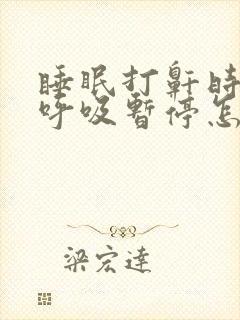 睡眠打鼾时
呼吸暂停怎
梁宏達